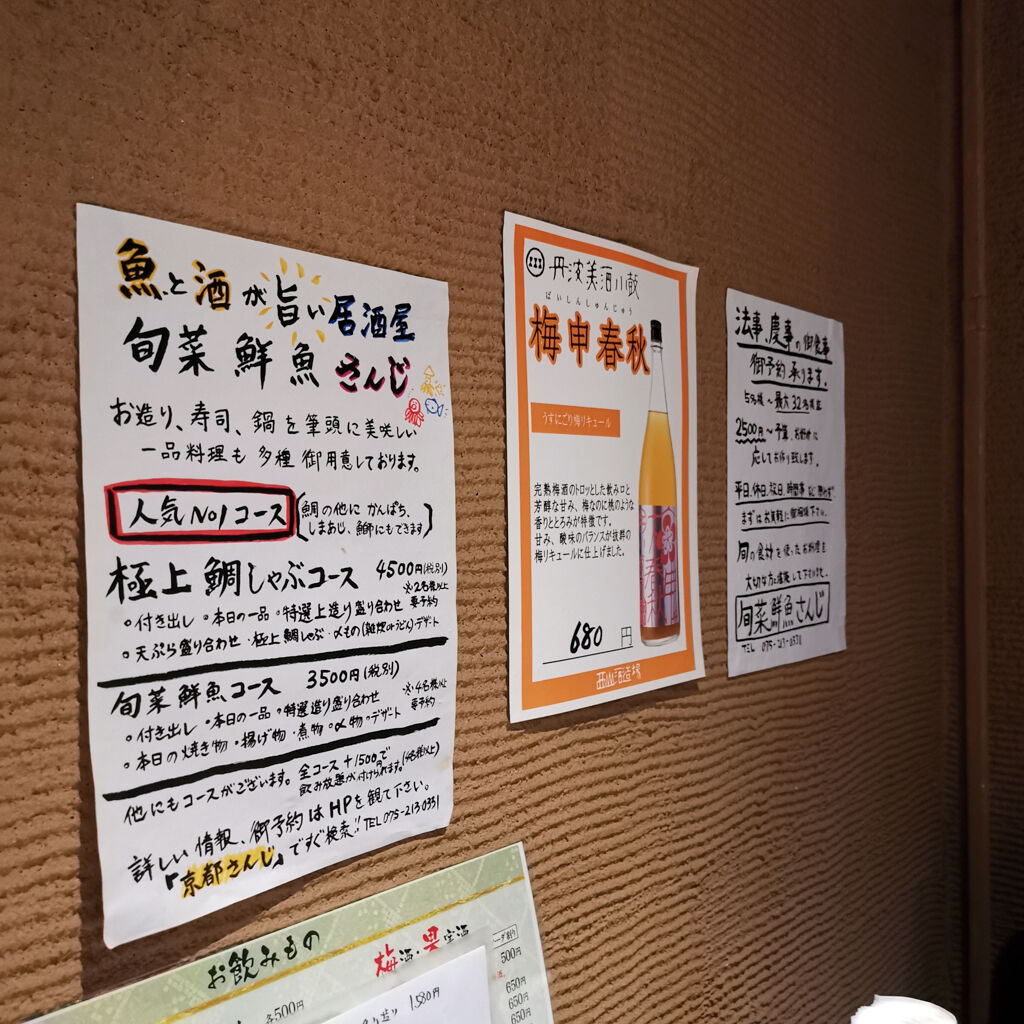 魚と酒が旨い居酒屋
旬菜鮮魚さんじ
お造り、寿司、鍋を筆頭に美味しい
一品料理も多種御用意しております。
人気No1コース
(鯛の他にかんぱち、
しまあじ、鰤にもできます)
極上鯛しゃぶコース 4500円(税別)
※2名様以上
要予約
◦付き出し ◦本日の一品 ◦特選上造り盛り合わせ
◦天ぷら盛り合わせ・極上鯛しゃぶ・〆もの(雑炊orうどん)・デザート
旬菜鮮魚コース 3500円(税別)
※4名様以上
要予約
◦付き出し ◦本日の一品 ◦特選造り盛り合わせ
◦本日の焼き物 ・揚げ物 ・煮物 ・〆物 ・デザート
他にもコースがございます。全コース+1500円で
飲み放題が付けられます。(4名様以上)
詳しい情報、御予約はHPを観て下さい。
『京都さんじ』ですぐ検索!! TEL 075-213-0331
丹波美酒小鼓
ばいしんしゅんじゅう
梅申春秋
うすにごり梅リキュール
完熟梅酒のトロッとした飲み口と
芳醇な甘み、梅なのに桃のような
香りととろみが特徴です。
甘み、酸味のバランスが抜群の
梅リキュールに仕上げました。
680円
西山酒造場
法事、慶事の御食事
御予約承ります。
5名様~最大32名様迄
2500円~予算、お好みに
応じてお作り致します。
平日、休日、祝日、時間等など問わず
まずはお気軽に御相談下さい。
旬の食材を使ったお料理を
大切な方に堪能して下さいませ。
旬菜鮮魚さんじ
TEL 075-213-0331
お飲みもの
梅酒・果実酒
500円
650円
650円
650円
各500円
1,580円